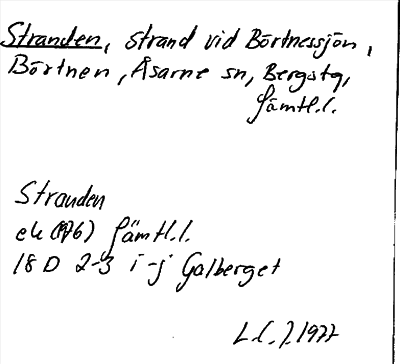 Stranden, strand vid Börtnessjön,
Börtnen, Åsarne sn, Bergs tg,
Jämtl.l.
Stranden
ek (176) Jämtl.l.
18 D 2-3 i-j Galberget
1977